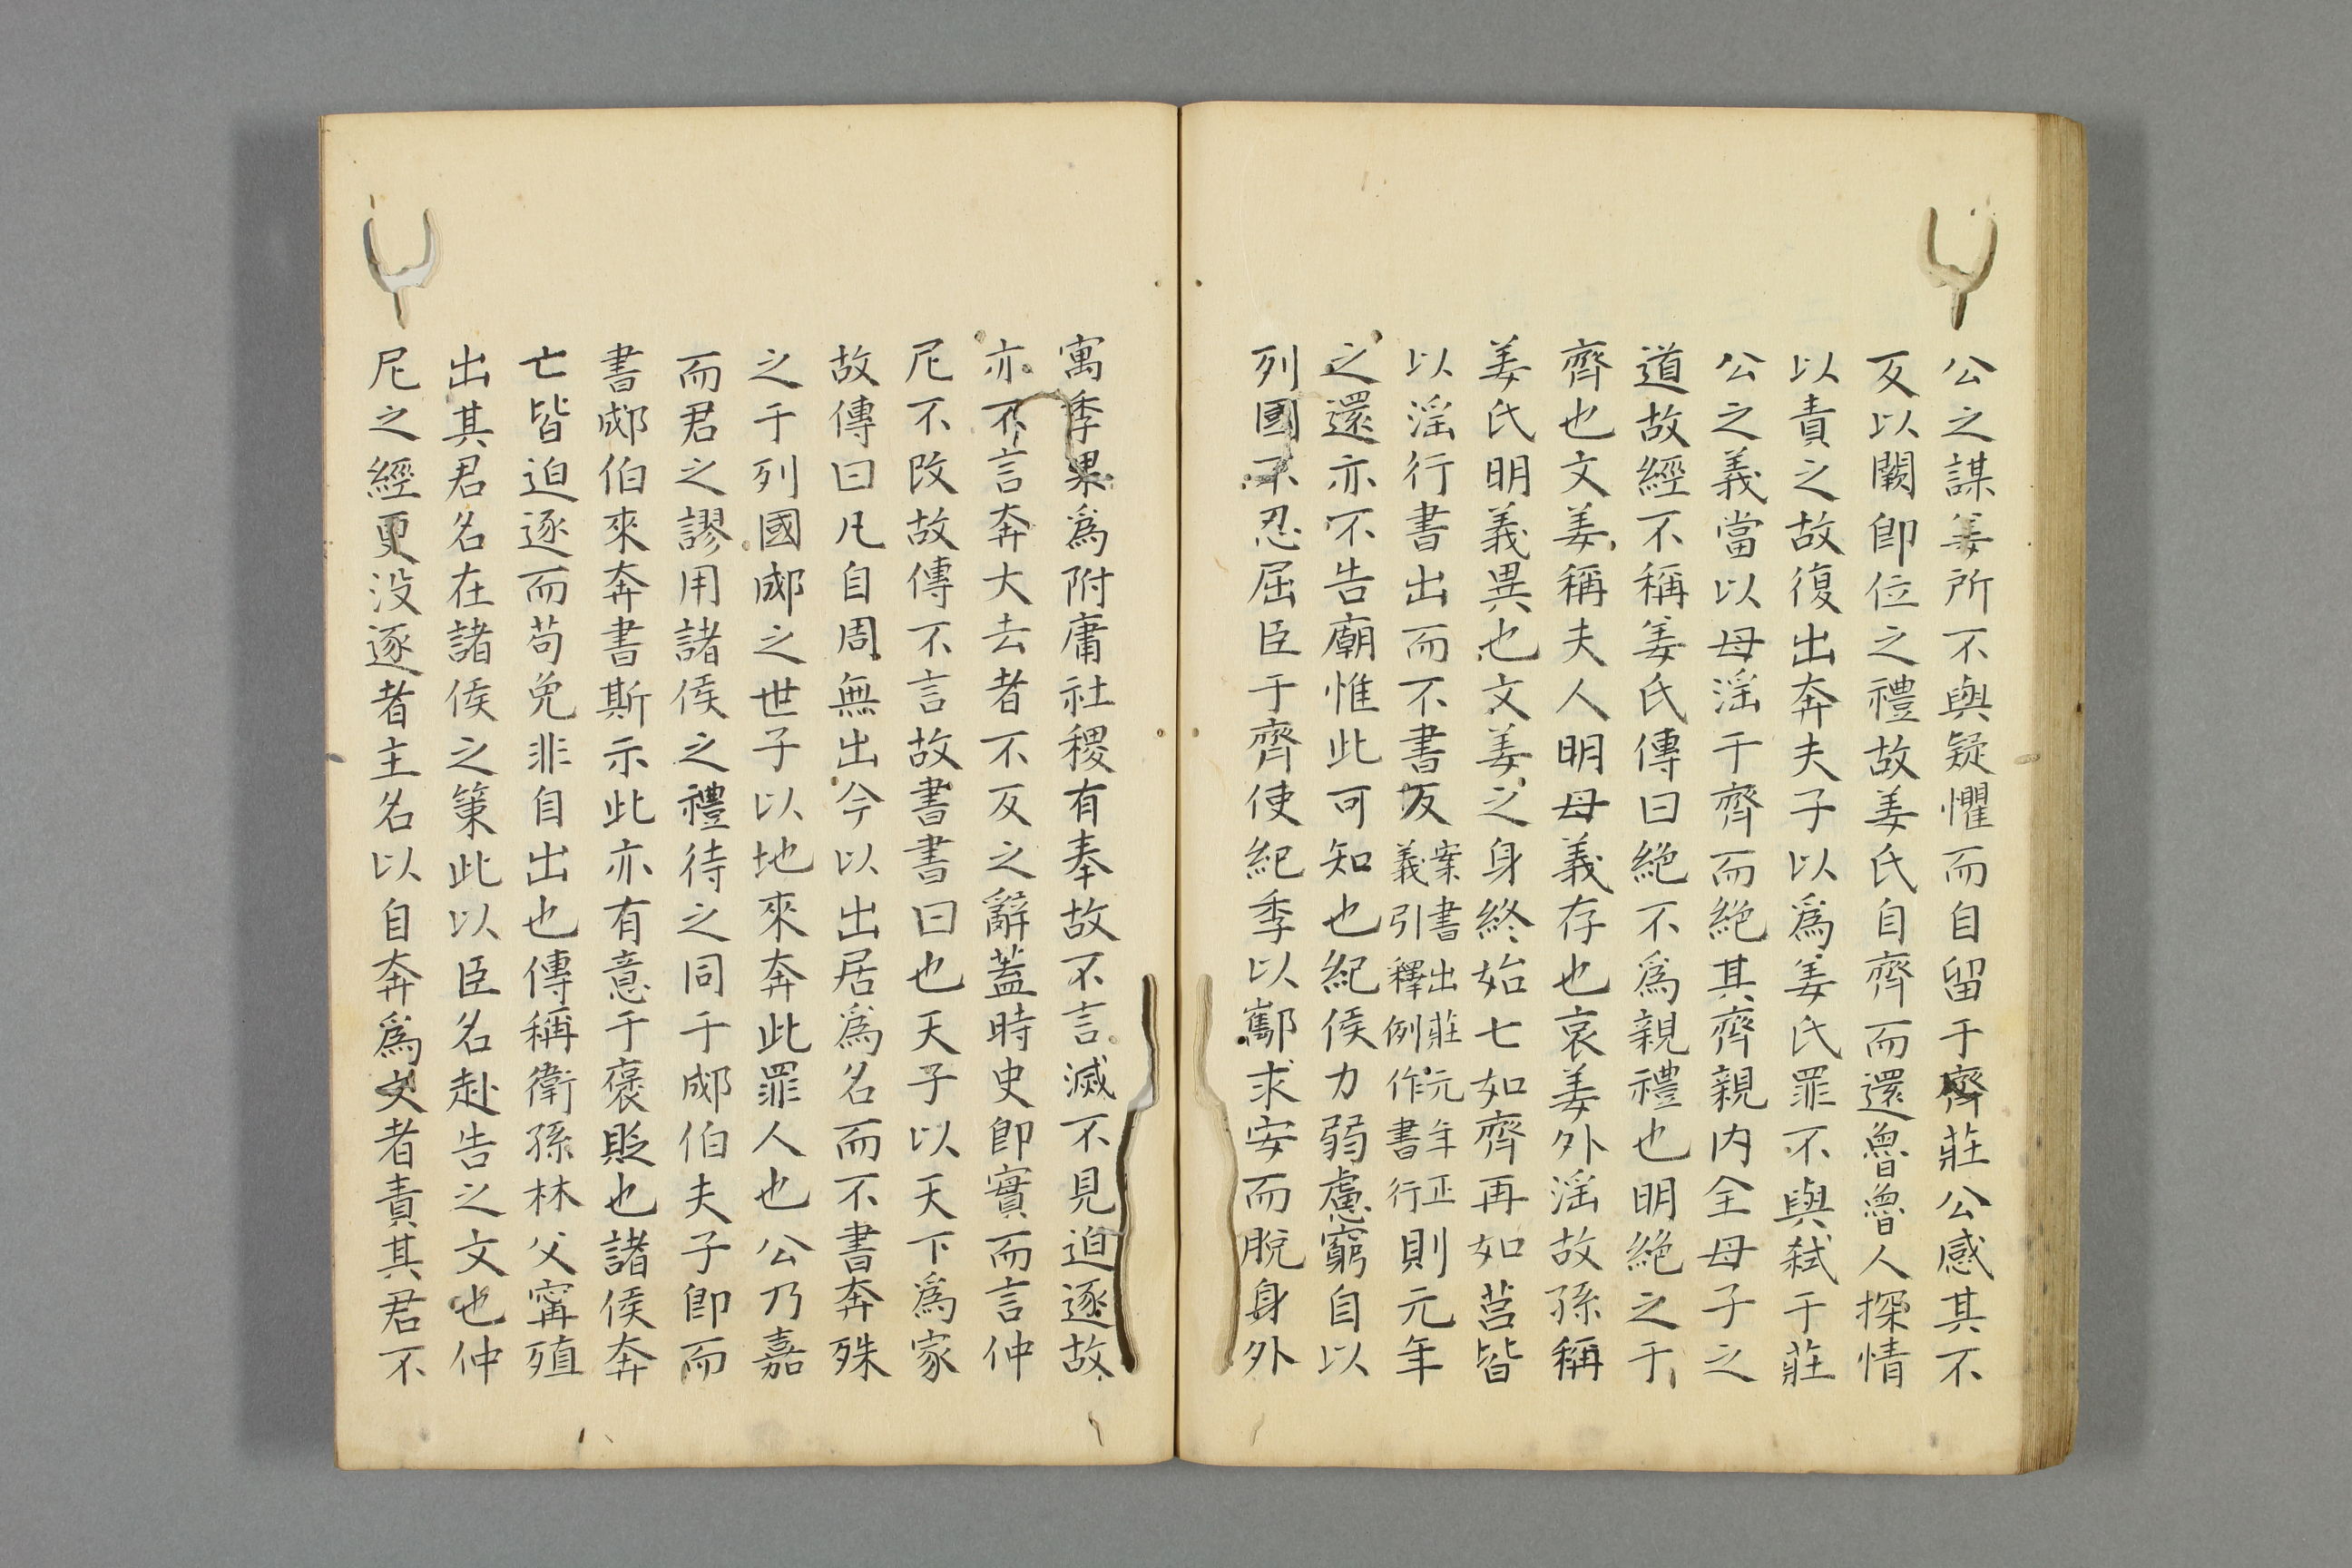 公之謀姜所不與疑懼而自留于齊莊公感其不
反以闕卽位之禮故姜氏自齊而還魯魯人探情
以責之故復出奔夫子以爲姜氏罪不與弑于莊
公之義當以母淫于齊而絶其齊親内全母子之
道故經不稱姜氏傳曰絶不爲親禮也明絶之于
齊也文姜稱夫人明母義存也哀姜外淫故孫稱
姜氏明義異也文姜之身終始七如齊再如莒皆
以淫行書出而不書反案書出莊元年正義引釋例作書行則元年
之還亦不告廟惟此可知也紀侯力弱慮窮自以
列國不忍屈臣于齊使紀季以酅求安而脫身外
寓季果爲附庸社稷有奉故不言滅不見迫逐故
亦不言奔大去者不反之辭蓋時史卽實而言仲
尼不改故傳不言故書書曰也天子以天下爲家
故傳曰凡自周無出今以出居爲名而不書奔殊
之于列國郕之世子以地來奔此罪人也公乃嘉
而君之謬用諸侯之禮待之同于郕伯夫子卽而
書郕伯來奔書斯示此亦有意于褒貶也諸侯奔
亡皆迫逐而苟免非自出也傳稱衛孫林父甯殖
出其君名在諸侯之策此以臣名赴告之文也仲
尼之經更没逐者主名以自奔爲文者責其君不